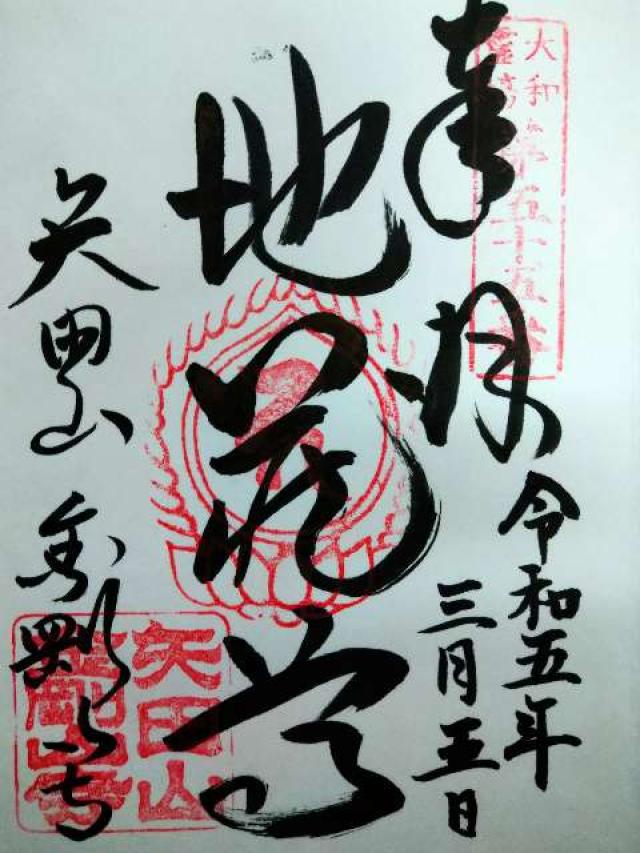 大和
霊場
第五十五番
奉拝
令和五年
三月五日
地蔵尊
矢田山 金剛山寺
矢田山
金剛山寺